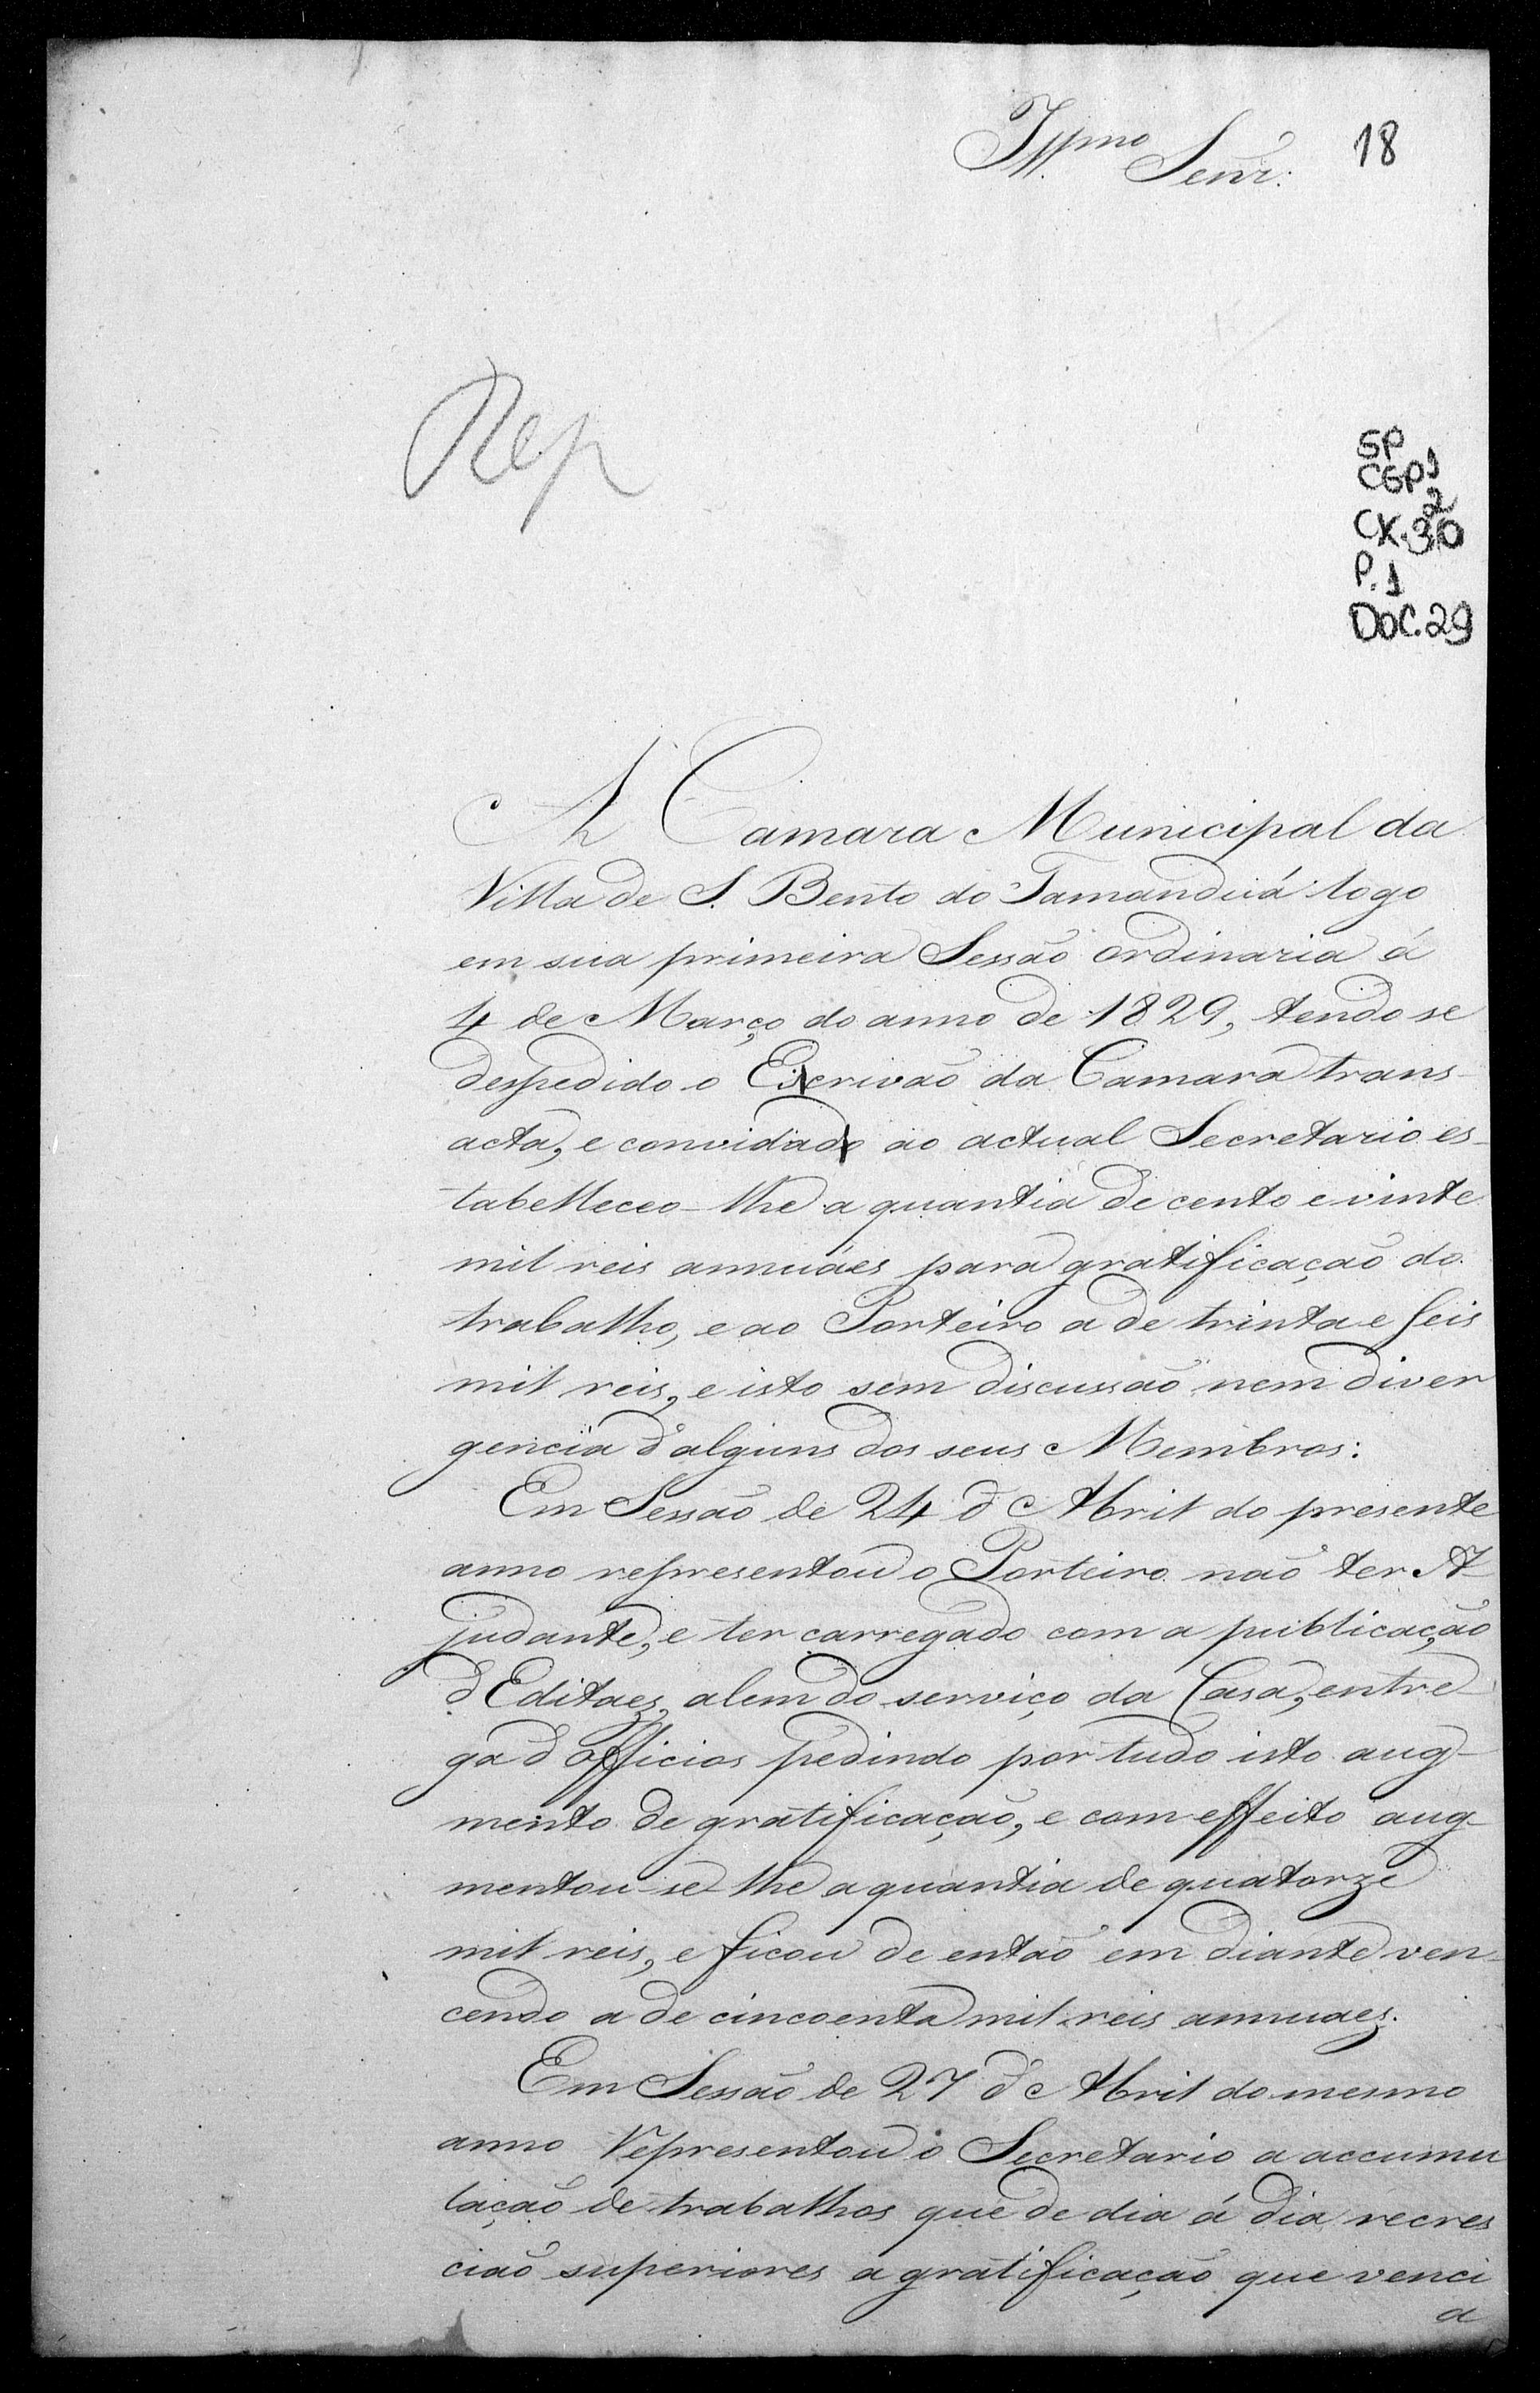 Illmo Senr. 18
Rep
SP
CGP1
2
CX.30
P.1
DOC.29
A Camara Municipal da
Villa de S. Bento do Tamanduá logo
em sua primeira Sessão ordinaria á
4 de Março do anno de 1829, tendo se
despedido o Escrivão da Camara trans-
acta, e convidado ao actual Secretario es-
tabelleceo-lhe a quantia de cento e vinte
mil reis annuáes para gratificação do
trabalho, e ao Porteiro a de trinta e seis
mil reis, e isto sem discussão nem diver
gencia d'alguns dos seus Membros:
Em Sessão de 24 d'Abril do presente
anno representou o Porteiro não ter A-
judante, e ter carregado com a publicação
d'Editaes, alem do serviço da Casa, entre-
ga d'officios pedindo por tudo isto aug-
mento de gratificação, e com effeito aug-
mentou-se-lhe a quantia de quatorze
mil reis, e ficou de então em diante ven-
cendo a de cincoenta mil reis annuaes.
Em Sessão de 27 d'Abril do mesmo
anno Representou o Secretario a accumu
lação de trabalhos que de dia á dia recres
cião superiores a gratificação que venci
a